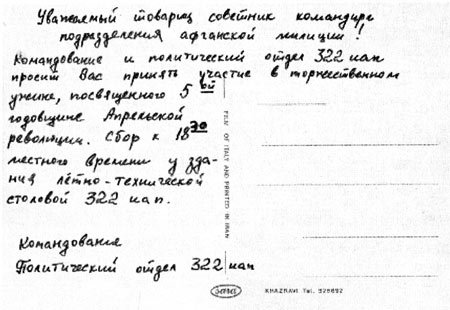 Уважаемый товарищ советник командира
подразделения афганской милиции!
Командование и политический отдел 322 иап
просит Вас принять участие в торжественном
ужине, посвященного 5ой
годовщине Апрельской
революции. Сбор к 18 30
местного времени у зда-
ния лётно-технической
столовой 322 иап.
Командование
Политический отдел 322 иап
FILM OF ITALY AND PRINTED IN IRAN
sara
KHAZRAVI Tel. 325692